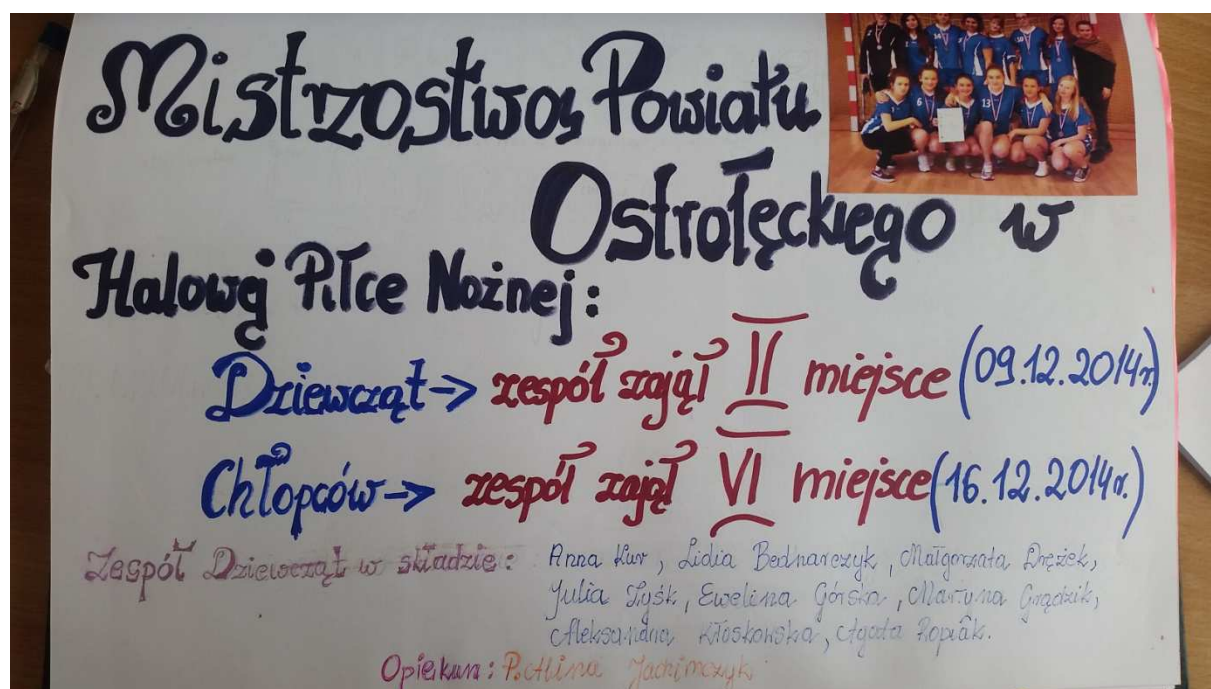 Mistrzostwa Powiatu
Ostrołęckiego w
Halowej Piłce Nożnej:
Dziewcząt → zespół zajął II miejsce (09.12.2014r.)
Chłopców → zespół zajął VI miejsce (16.12.2014r.)
Zespół Dziewcząt w składzie: Anna Kur, Lidia Bednarczyk, Małgorzata Drężek,
Julia Łyśk, Ewelina Górska, Martyna Grądzik,
Aleksandra Kłoskowska, Agata Ropiak.
Opiekun: P. Alina Jachimczyk